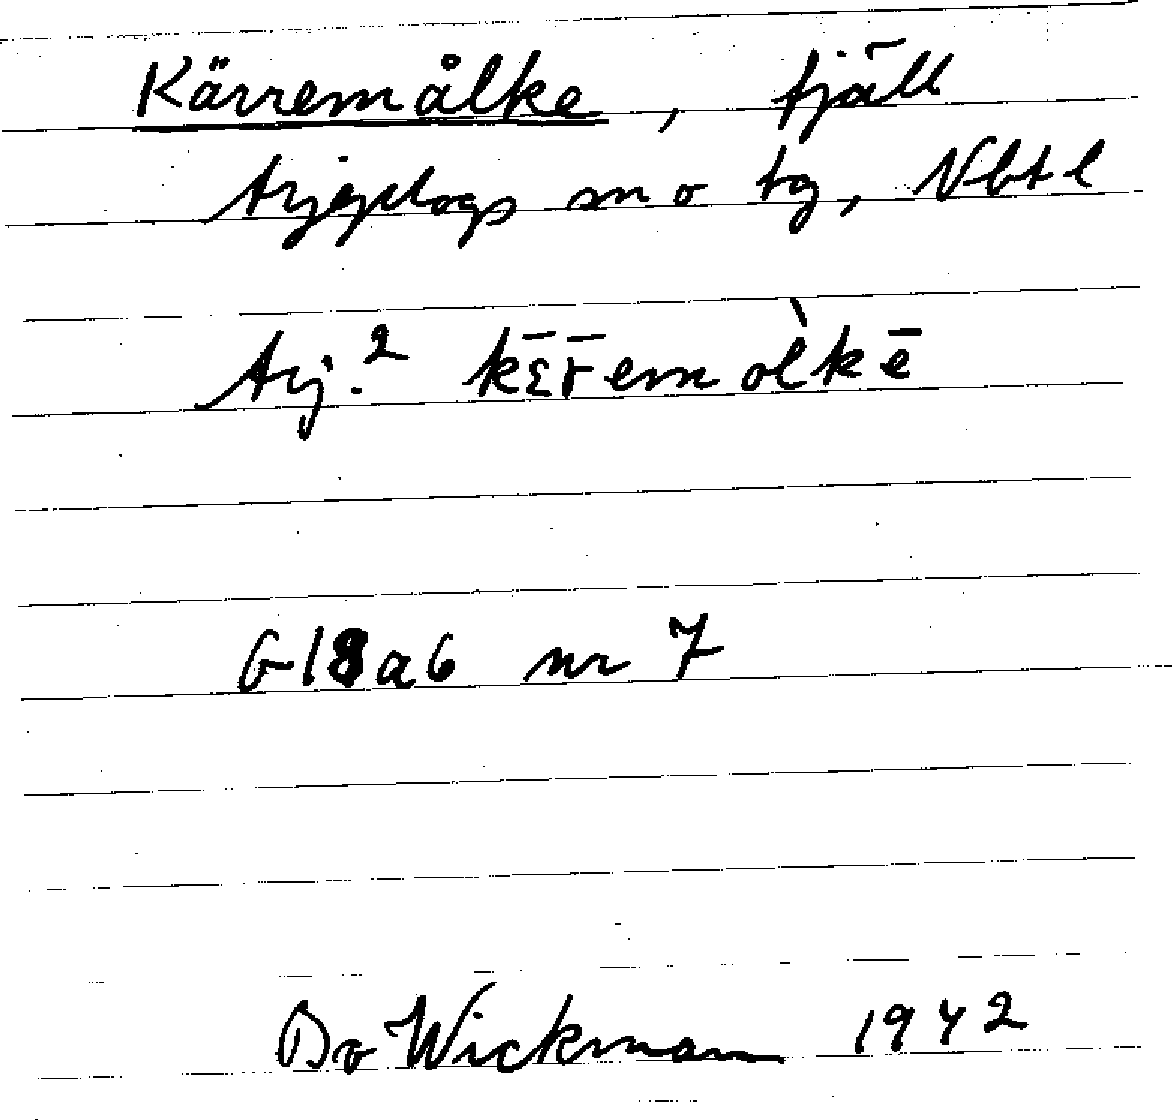 Kärremålke, fjäll
Arjeplogs sn o tg, Nbtl
Arj.² kɛ̄r̄emålkē
G18a6 nr 7
Bo Wickman 1942